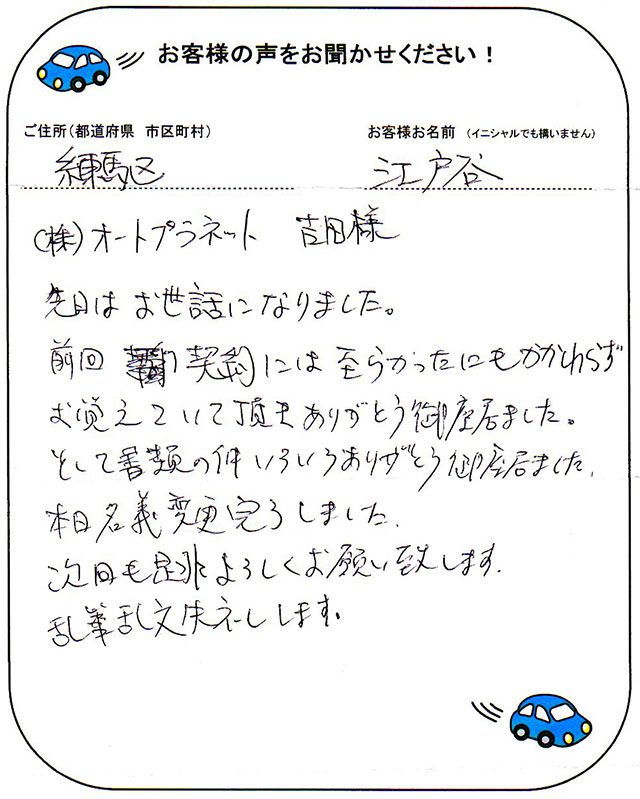 お客様の声をお聞かせください!
ご住所(都道府県 市区町村)
お客様お名前 (イニシャルでも構いません)
練馬区
江戸谷
(株)オートプラネット 吉田様
先日はお世話になりました。
前回 契約には至らかったにもかかわらず
お覚えていて頂きありがとう御座居ました。
そして書類の件いろいろありがとう御座居ました.
本日名義変更完了しました.
次回も是非よろしくお願い致します.
乱筆乱文失礼します。